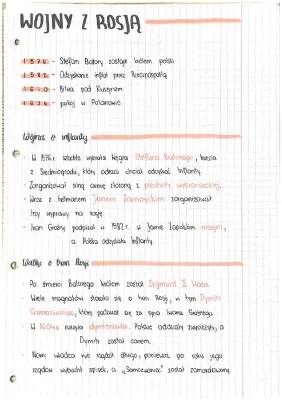 WOJNY Z ROSJĄ
1576 - Stefan Batory zostaje królem polski
1582 - Odzyskanie inflat przez Rzeczpospolitą
1610 - Bitwa pod Kłuszynem
1634 - pokój w Polanowie
Wojna o inflanty
• W 1576r. szlachta wybrała Węgra Stefana Batorego, księcia
z Siedmiogrodu, który odrazu chciał odzyskać Inflanty.
• Zorganizował silną armię złożoną z piechoty wybranieckiej.
• Wraz z hetmanem Janem Zamoyskim zorganizował
trzy wyprawy na rosję.
• Iwan Groźny podpisał w 1582r. w Jamie Zapolskim rozejm,
a Polska odzyskała Inflanty.
Walki o tron Rosji
• Po śmierci Batorego królem został Zygmunt III Waza.
• Wiele magnatów starało się o tron Rosji, w tym Dymitr
Samozwaniec, który podawał się za syna Iwana Groźnego.
• W 1604r. ruszyła dymitriada. Polskie oddziały zwyciężyły, a
Dymitr został carem.
• Nowy władca nie rządził długo, ponieważ po roku jego
rządów wybuchł spisek, a "Samozwaniec" został zamordowany.